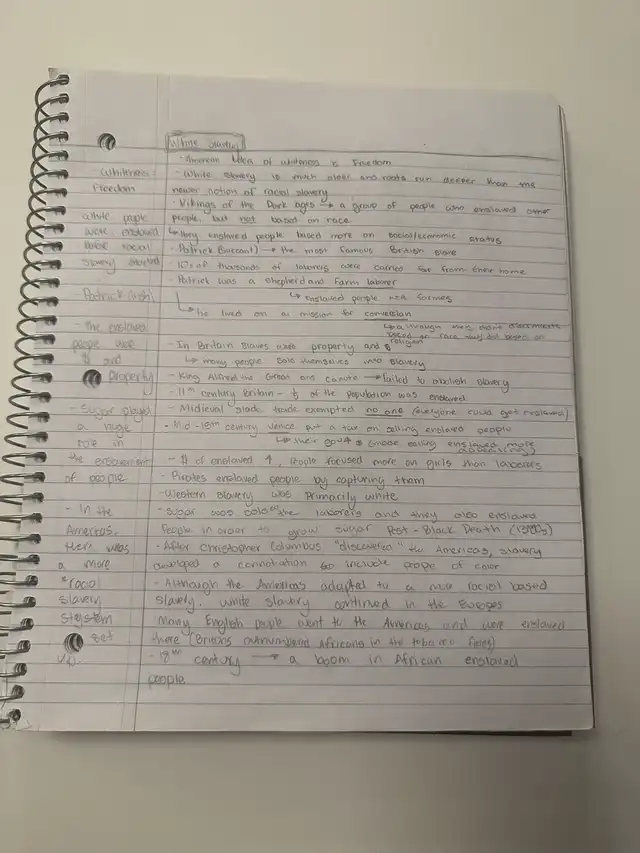 White Slavery
- American Idea of whiteness is Freedom
Whiteness = - White slavery is much older and roots run deeper than the
Freedom newer notion of racial slavery
- Vikings of the Dark ages → a group of people who enslaved other
White people people, but not based on race
were enslaved ↳ They enslaved people based more on social/economic status
before racial - Patrick (Succant) → the most famous British slave
slavery started - 10s of thousands of laborers were carried far from their home
- Patrick was a shepherd and Farm laborer
Patrick ↳ enslaved people were farmers
↳ he lived on a mission for conversion
- The enslaved ↳ Although they didn't discriminate
based on race they did based on
people were - In Britain slaves were property and $ religion
$ and ↳ many people sold themselves into slavery
property - King Alfred the Great and Canute → failed to abolish slavery
- 11th century Britain - of the population was enslaved
- Sugar played - Midieval slade trade exempted no one (everyone could get enslaved)
a huge - Mid - century Venice put a tax on selling enslaved people
role in ↳ their gov $ (made selling enslaved more appealing)
the enslavement - $ of enslaved ↑, People focused more on girls than laborers
of people - Pirates enslaved people by capturing them
- Western slavery was primarily white
- In the - Sugar was the laborers and they also enslaved
Americas, People in order to grow sugar Post - Black Death
there was - After Christopher Columbus "discovered" the Americas, slavery
a more developed a connotation to include people of color
"racial - Although the Americas adapted to a more racial based
slavery slavery, white slavery continued in the Europes
system Many English people went to the Americas and were enslaved
set there (Britons outnumbered Africans in the tobacco fields)
up. - 18th century → a boom in African enslaved
people